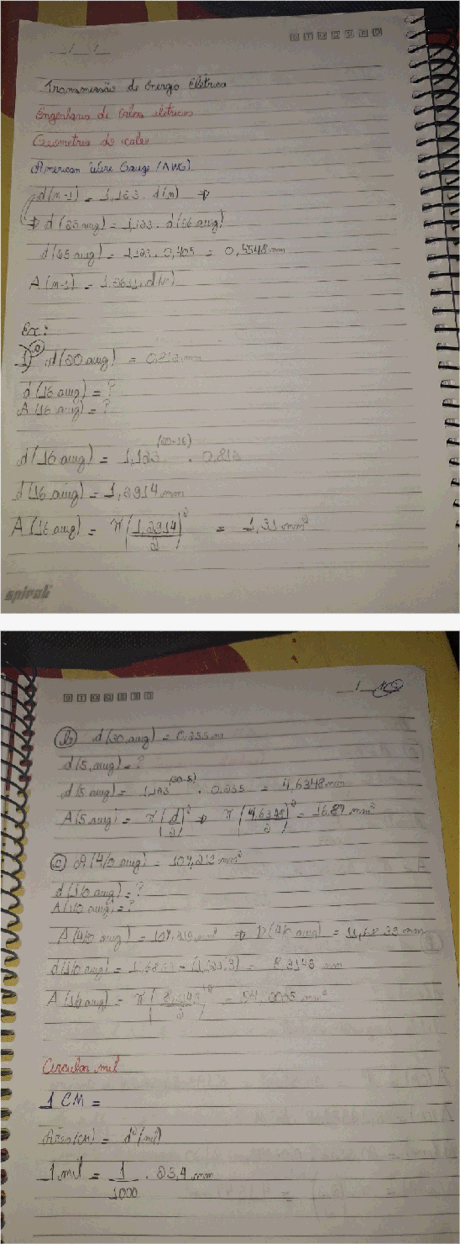 Transmissão de Energia Elétrica
Engenharia de Cabos elétricos
Geometria do cabo
American Wire Gauge (AWG)
d(n-1) = 1,123 . d(n) ⇒
⇒ d(25 awg) = 1,123 . d(26 awg)
= 1,123 . 0,405 = 0,4548 mm
A(n-1) =
Ex:
1) a) d(20 awg) = 0,812 mm
d(16 awg) = ?
A(16 awg) = ?
d(16 awg) = 1,123^(20-16) . 0,812
d(16 awg) = 1,2914 mm
A(16 awg) = π(1,2914/2)² = 1,31 mm²
spiral
b) d(30 awg) = 0,255 m
d(5 awg) = ?
d(5 awg) = 1,123^(30-5) . 0,255 = 4,6348 mm
A(5 awg) = π(d/2)² ⇒ π(4,6348/2)² = 16,87 mm²
c) A(4/0 awg) = 107,219 mm²
d(1/0 awg) = ?
A(1/0 awg) = ?
A(4/0 awg) = 107,219 mm² ⇒ D(4/0 awg) = mm
d(1/0 awg) = = 8,2143 mm
A(1/0 awg) = π( /2)² = mm²
Circular mil
1 CM =
Área(CM) = d²(mil)
1 mil = 1/1000 . 25,4 mm